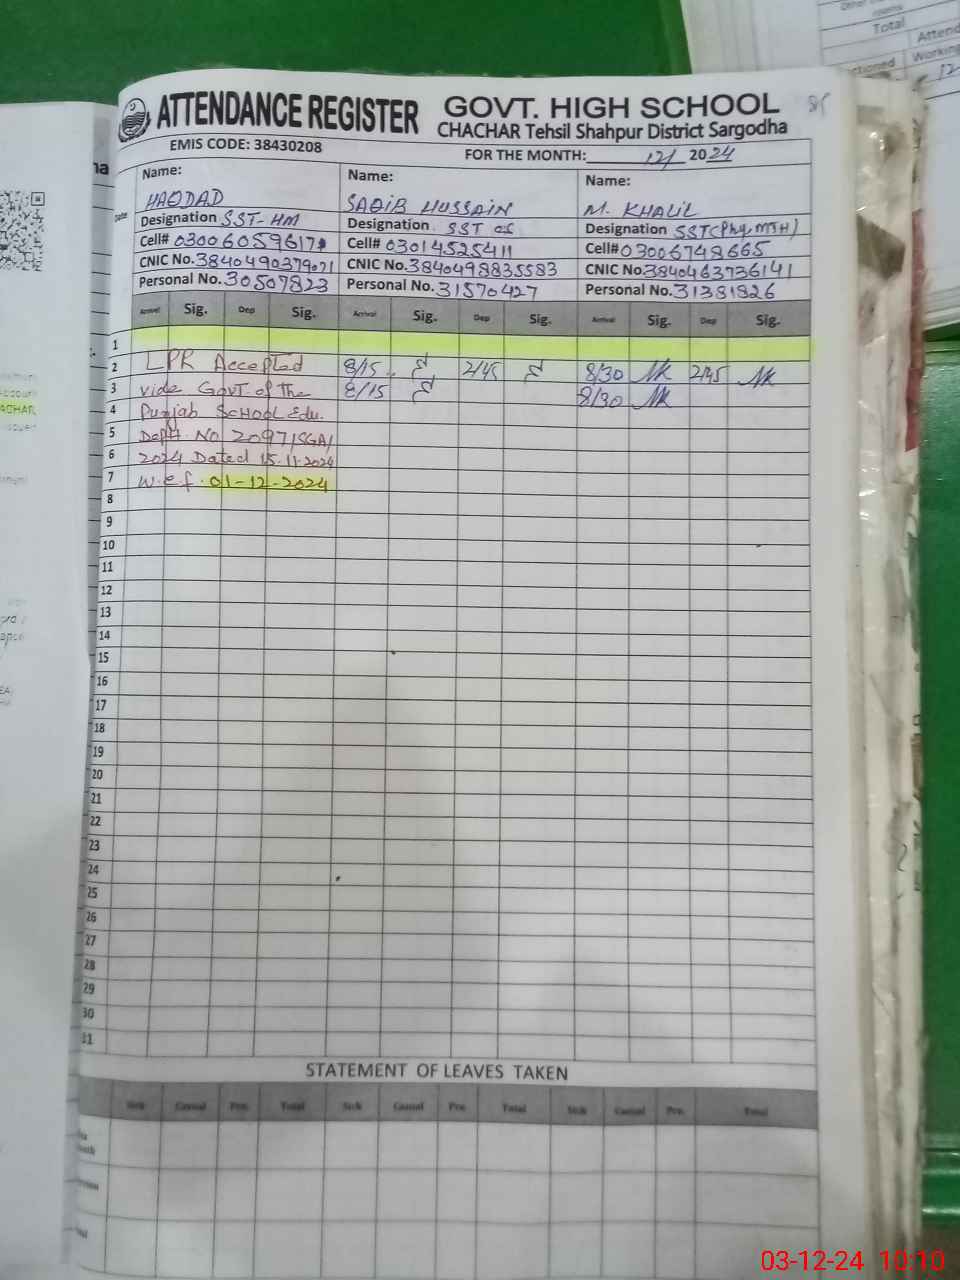 ATTENDANCE REGISTER GOVT. HIGH SCHOOL
CHACHAR Tehsil Shahpur District Sargodha
EMIS CODE: 38430208 FOR THE MONTH: 12/ 2024
Name: Name: Name:
HAQDAD SAQIB HUSSAIN M. KHALIL
Date
Designation SST-HM Designation SST CS Designation SST(Phy, MTH)
Cell# 03006059617 Cell# 03014525411 Cell# 03006748665
CNIC No. 3840490379071 CNIC No. 3840498835583 CNIC No. 3840463736141
Personal No. 30507823 Personal No. 31570427 Personal No. 31381826
Arrival Sig. Dep Sig. Arrival Sig. Dep Sig. Arrival Sig. Dep Sig.
1
2 LPR Accepted 8/15 2/45 8/30 MK 2/45 MK
3 vide Govt. of the 8/15 8/30 MK
4 Punjab School Edu.
5 Deptt. No 2097/SGA/
6 2024 Dated 15-11-2024
7 w.e.f. 01-12-2024
8
9
10
11
12
13
14
15
16
17
18
19
20
21
22
23
24
25
26
27
28
29
30
31
STATEMENT OF LEAVES TAKEN
Sick Casual Pre. Total Sick Casual Pre Total Sick Casual Pre. Total
Other
Total
Attend
Working
03-12-24 10:10